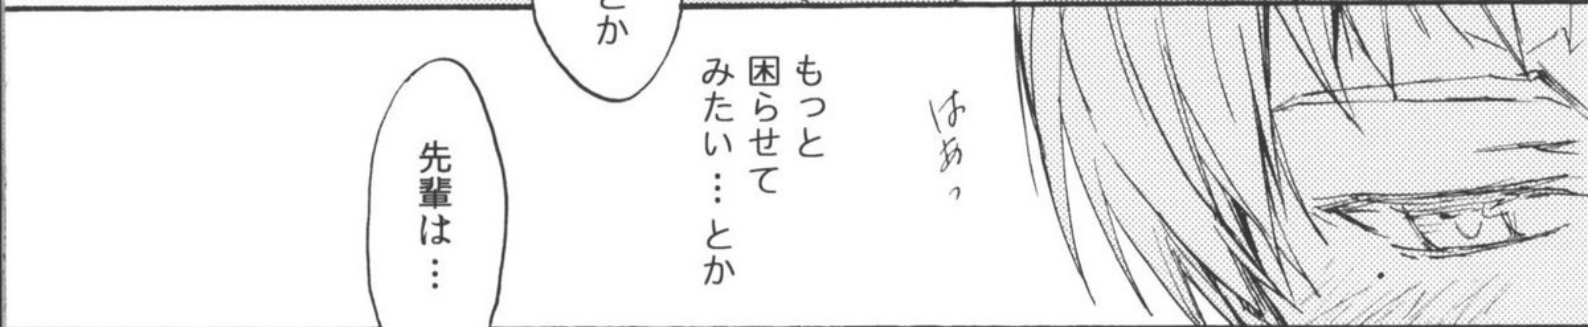 はぁっ
もっと
困らせて
みたい…とか
とか
先輩は…